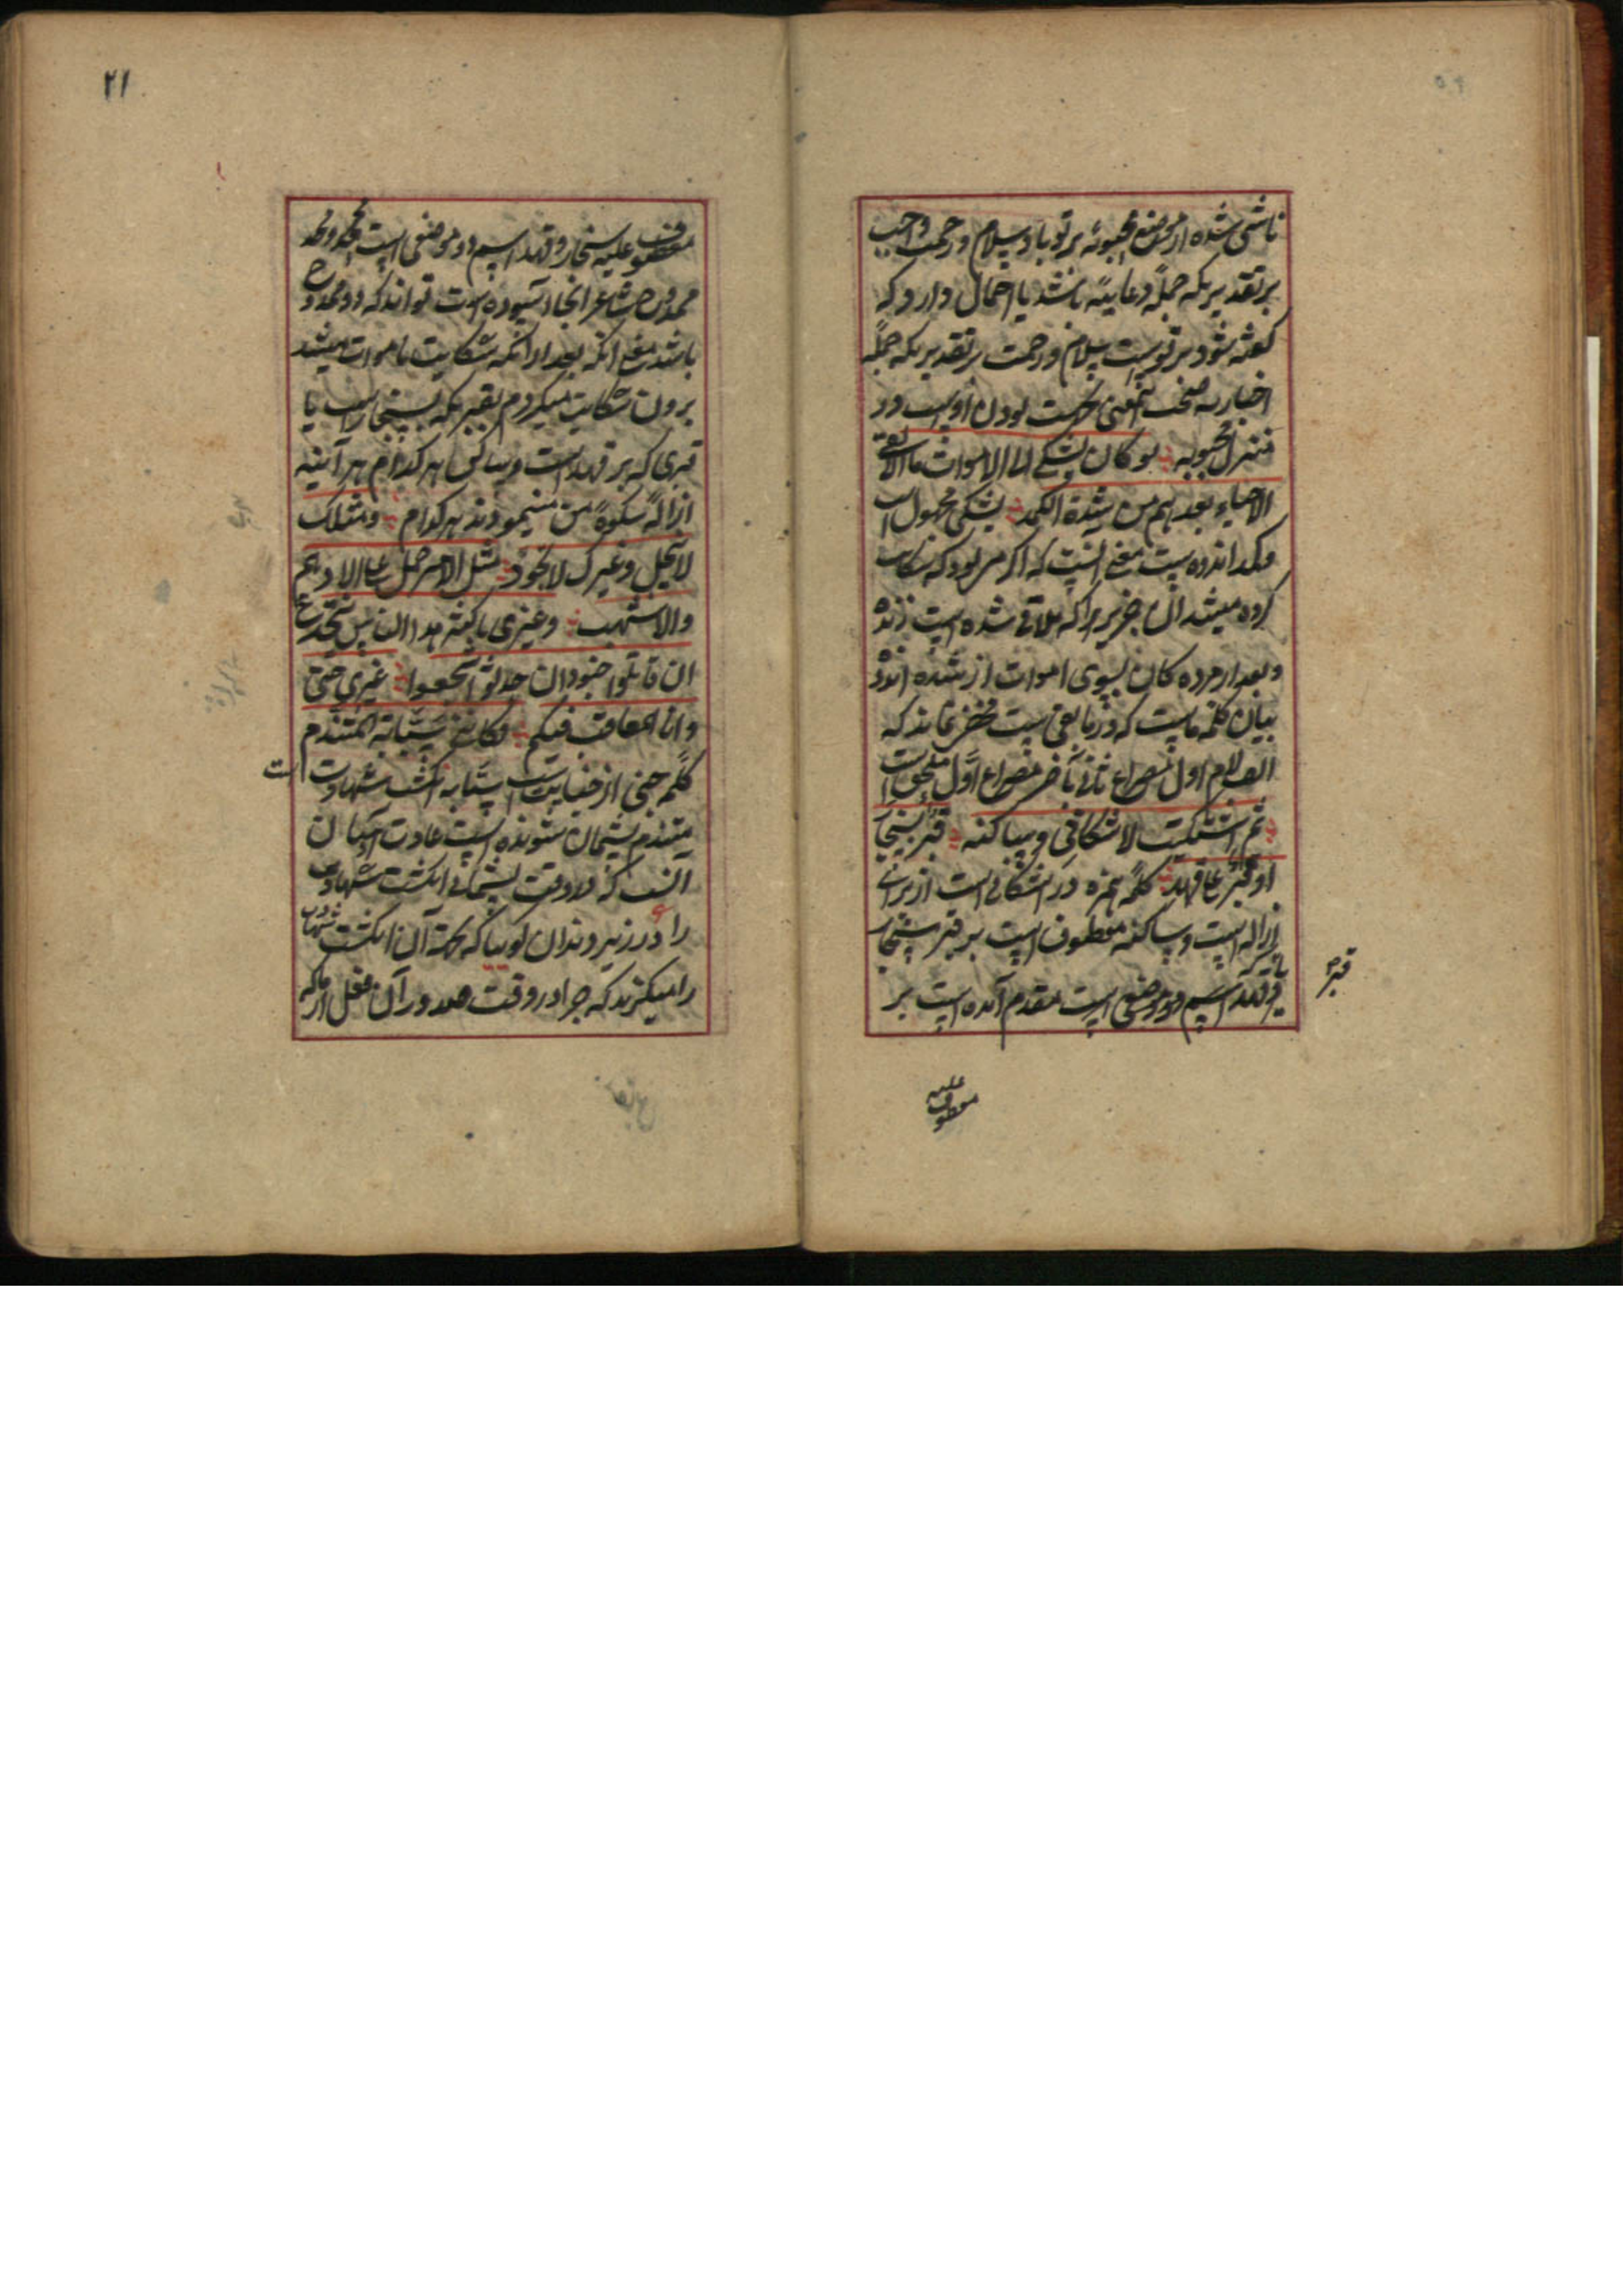 ناشی شده از محض محبوبه بر تو باد سلام و رحمت واجب
بر تقدیریکه جمله دعاییه باشد یا احتمال دارد که
گفته شود بر توست سلام و رحمت بر تقدیریکه جمله
اخباریه بودن او است در
منزل محبوبه لو کان یشکی الی الاموات ما لاقی
الاحیاء بعدهم من شدة الکمد یشکی مجهول است
و کمد اندوه است معنی آنست که اگر میبود که شکایت
کرده میشد آن چیزیرا که ملاقی شده است زنده
و بعد از مرده کان بسوی اموات از شده اندوه
بیان کلمه ما است که در ما لقی است مخفی نماند که
الف لام اول مصراع ثانی بآخر مصراع اول ملحق است
ثم اشتکیت لاشکانی و ساکنه قبر بسنجار
او قبر علی قهد کلمه همزه در اشکانی است از برای
ازاله است و ساکنه معطوف است بر قبر سنجار
یا قهد اسم دو موضعی است مقدم آمده است بر
قبر
معطوف علیه
۲۱
معطوف علیه سنجار و قهد اسم دو موضعی است که
ممدوح شاعر انجا آسوده است تواند که دو ممدوح
باشد معنی آنکه بعد از آنکه شکایت باموات میشد
برون شکایت میکردم بقبریکه بسنجار است یا
قبری که بر قهد است و ساکن هر کدام هر آینه
ازاله شکوه من مینمودند هر کدام و مثلک
لا یبخل و غیرک لا یجود مثل الامیر حمل علی الادهم
والاشهب وغیری باکثر هذا الناس ینخدع
ان قاتلوا جبنوا او حدثوا شجعوا غیری جنی
وانا المعاقب فیکم فکاننی سبابة المتندم
کلمه جنی از جنایت است سبابه انگشت شهادت است
متندم پشیمان شونده است عادت آدمیان
آنست که در وقت پشیمانی انگشت شهادت
را در زیر دندان گویا که آن انگشت شهادت
را میگزند که چرا در وقت صدور آن فعل از ما که